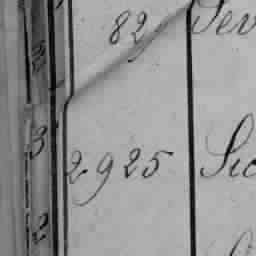 82 Dev
3
3 2925 Sic
2